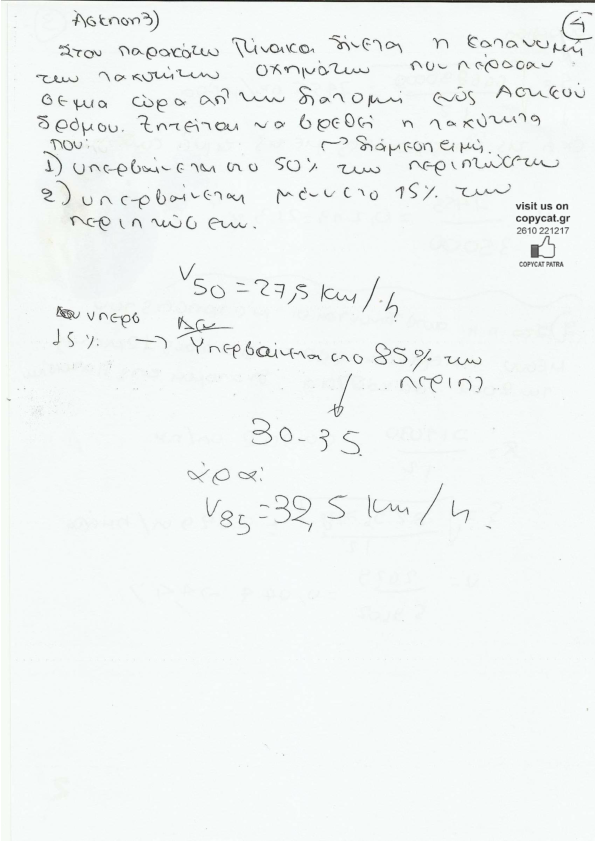 Άσκηση 3)
4
Στον παρακάτω Πίνακα δίνεται η κατανομή
των ταχυτήτων οχημάτων που πέρασαν
σε μια ώρα απ' την διατομή ενός Αστικού
δρόμου. Ζητείται να βρεθεί η ταχύτητα
που: → διάμεση τιμή.
1) υπερβαίνεται στο 50% των περιπτώσεων
2) υπερβαίνεται μόνο στο 15% των
περιπτώσεων.
visit us on
copycat.gr
2610 221217
COPYCAT PATRA
V50 = 27,5 km/h
υπερβ
15% → Υπερβαίνεται στο 85% των
περιπ)
30-35
άρα:
V85 = 32,5 km/h.